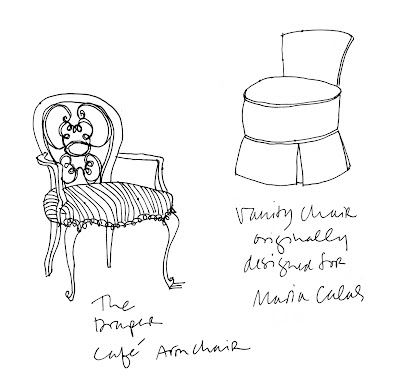 Vanity Chair
originally
designed for
Maria Calas
The
Draper
Café Armchair